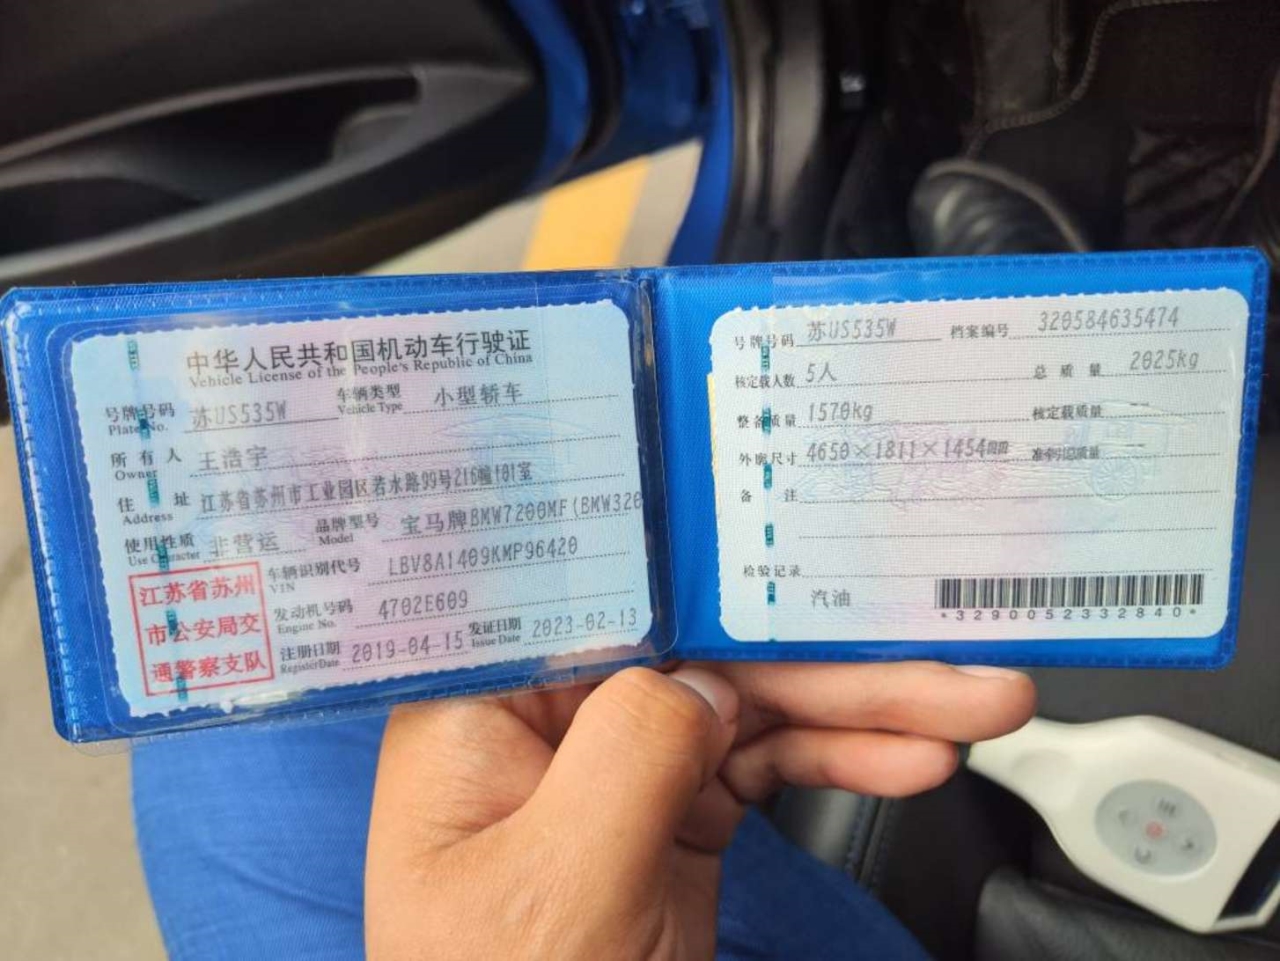 中华人民共和国机动车行驶证
Vehicle License of the People's Republic of China
号牌号码 苏US535W 车辆类型 小型轿车
Plate No. Vehicle Type
所有人 王浩宇
Owner
住址 江苏省苏州市工业园区若水路99号216幢101室
Address
使用性质 非营运 品牌型号 宝马牌BMW7200MF(BMW320
Use Character Model
车辆识别代号 LBV8A1409KMP96420
VIN
发动机号码 4702E609
Engine No.
注册日期 2019-04-15 发证日期 2023-02-13
Register Date Issue Date
江苏省苏州
市公安局交
通警察支队
号牌号码 苏US535W 档案编号 320584635474
核定载人数 5人 总质量 2025kg
整备质量 1570kg 核定载质量 --
外廓尺寸 4650×1811×1454mm 准牵引总质量 --
备注
检验记录
汽油
*3290052332840*